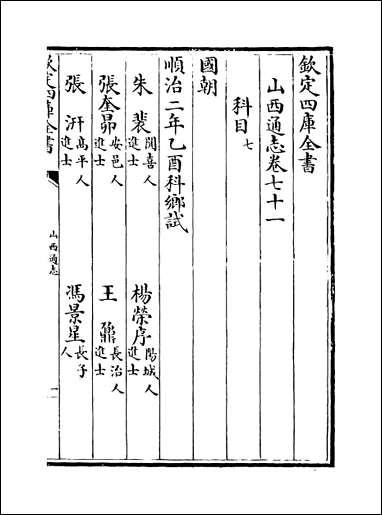 欽定四庫全書
山西通志卷七十一
科目七
國朝
順治二年乙酉科鄉試
朱裴 聞喜人 進士 楊榮序 陽城人 進士
張奎昴 安邑人 進士 王鼐 長治人 進士
張汧 高平人 進士 馮景星 長子人
欽定四庫全書
山西通志
一